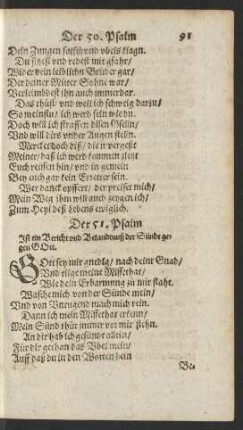 Der 50. Psalm 91
Dein Zungen falsch vnd vbels klagn.
Du sitzest vnd redest mit gfahr/
Wider dein leiblichn Bruder gar/
Der deiner Muter Sohne war/
Verleimbdest ihn auch immerdar.
Das thust/ vnd weil ich schweig darzu/
So meinstu/ ich werd sein wie du.
Doch will ich straffen dises
Vnd will dirs vnder Augen stelln.
Merckt doch diß/ die jr vergeßt
Meiner/ daß ich werd kommen
Euch reissen hin/ vnd in gemein
Bey euch gar kein Erretter sein.
Wer danck opffert/ der preiset mich/
Mein Weg ihm will auch zeygen ich/
Zum Heyl deß Lebens ewiglich.
Der 51. Psalm
Ist ein Bericht vnd Bekandtnuß der Sünde ge-
gen GOtt.
GOtt sey mir gnedig/ nach deine Gnad/
Vnd tilge meine Missethat/
Wie dein Erbarmung zu mir staht.
Wasche mich von der Sünde mein/
Vnd von Vntugend mach mich rein.
Dann ich mein Missethat erkenn/
Mein Sünd thut immer vor mir stehn.
An dir hab ich gesündet allein/
Für dir gethan das Vbel mein/
Auff daß du in den Worten dein